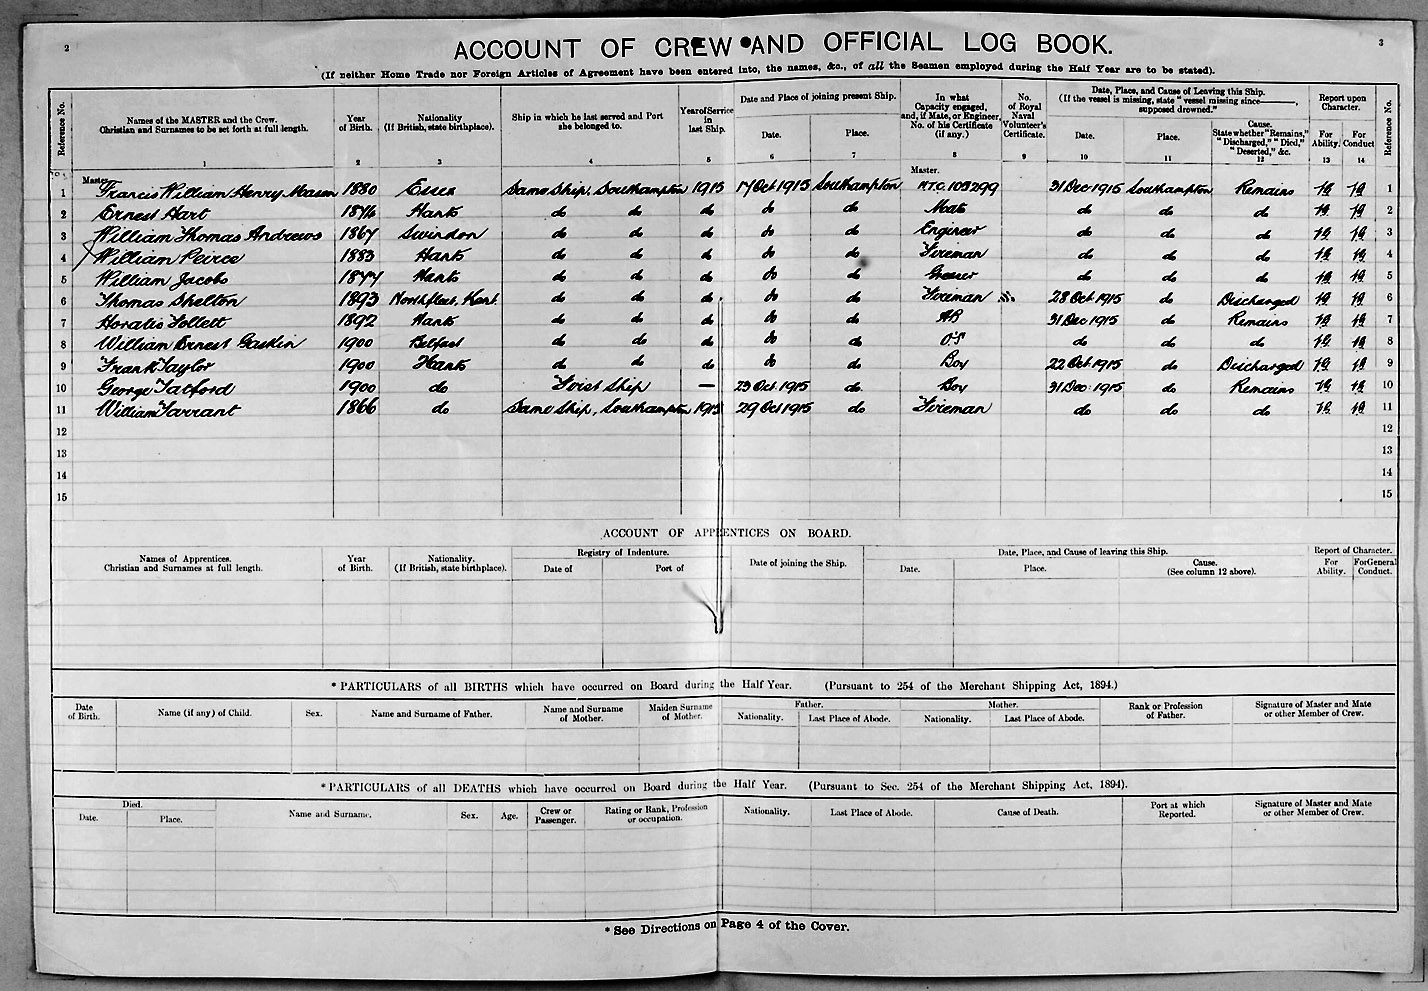 2
3
ACCOUNT OF CREW AND OFFICIAL LOG BOOK.
(If neither Home Trade nor Foreign Articles of Agreement have been entered into, the names, &c., of all the Seamen employed during the Half Year are to be stated).
Reference No. Names of the MASTER and the Crew. Christian and Surnames to be set forth at full length. Year of Birth. Nationality (If British, state birthplace). Ship in which he last served and Port she belonged to. Year of Service in last Ship. Date and Place of joining present Ship. In what Capacity engaged, and, if Mate, or Engineer, No. of his Certificate (if any.) No. of Royal Naval Volunteer's Certificate. Date, Place, and Cause of Leaving this Ship. (If the vessel is missing, state "vessel missing since———, supposed drowned." Report upon Character. Reference No.
Date. Place. Date. Place. Cause. State whether "Remains," "Discharged," "Died," "Deserted," &c. For Ability. For Conduct
1 2 3 4 5 6 7 8 9 10 11 12 13 14
Master. Master.
1 Francis William Henry Mason 1880 Essex Same Ship, Southampton 1915 17 Oct 1915 Southampton 103299 31 Dec 1915 Southampton Remains 1
2 Ernest Hart 1876 Hants do do do do do Mate do do do 2
3 William Thomas Andrews 1867 Swindon do do do do do Engineer do do do 3
4 William Peirce 1883 Hants do do do do do Fireman do do do 4
5 William Jacobs 1877 Hants do do do do do Greaser do do do 5
6 Thomas Shelton 1893 Northfleet, Kent. do do do do do Fireman 28 Oct 1915 do Discharged 6
7 Horatio Follett 1892 Hants do do do do do AB 31 Dec 1915 do Remains 7
8 William Ernest Gaskin 1900 Belfast do do do do do O.S do do do 8
9 Frank Taylor 1900 Hants do do do do do Boy 22 Oct 1915 do Discharged 9
10 George Tatford 1900 do First Ship — 23 Oct 1915 do Boy 31 Dec 1915 do Remains 10
11 William Tarrant 1866 do Same Ship, Southampton 1915 29 Oct 1915 do Fireman do do do 11
12 12
13 13
14 14
15 15
ACCOUNT OF APPRENTICES ON BOARD.
Names of Apprentices. Christian and Surnames at full length. Year of Birth. Nationality. (If British, state birthplace). Registry of Indenture. Date of joining the Ship. Date, Place, and Cause of leaving this Ship. Report of Character.
Date of Port of Date. Place. Cause. (See column 12 above). For Ability. For General Conduct.
*PARTICULARS of all BIRTHS which have occurred on Board during the Half Year. (Pursuant to 254 of the Merchant Shipping Act, 1894.)
Date of Birth. Name (if any) of Child. Sex. Name and Surname of Father. Name and Surname of Mother. Maiden Surname of Mother. Father. Mother. Rank or Profession of Father. Signature of Master and Mate or other Member of Crew.
Nationality. Last Place of Abode. Nationality. Last Place of Abode.
*PARTICULARS of all DEATHS which have occurred on Board during the Half Year. (Pursuant to Sec. 254 of the Merchant Shipping Act, 1894).
Died. Name and Surname. Sex. Age. Crew or Passenger. Rating or Rank, Profession or occupation. Nationality. Last Place of Abode. Cause of Death. Port at which Reported. Signature of Master and Mate or other Member of Crew.
Date. Place.
* See Directions on Page 4 of the Cover.